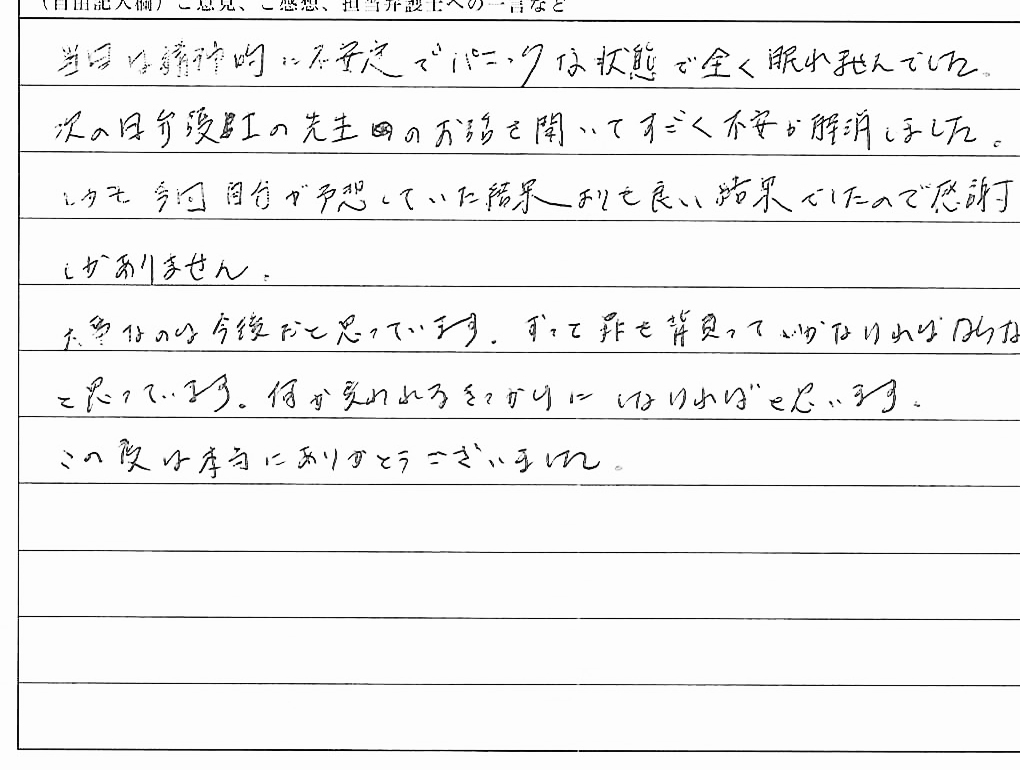 (自由記入欄)ご意見、ご感想、担当弁護士への一言など
当日は精神的に不安定でパニックな状態で全く眠れませんでした。
次の日弁護士の先生のお話を聞いてすごく不安が解消しました。
しかも今回自分が予想していた結果よりも良い結果でしたので感謝
しかありません。
大事なのは今後だと思っています。ずっと罪を背負っていかなければならな
と思っています。何か変われるきっかけにしなければと思います。
この度は本当にありがとうございました。